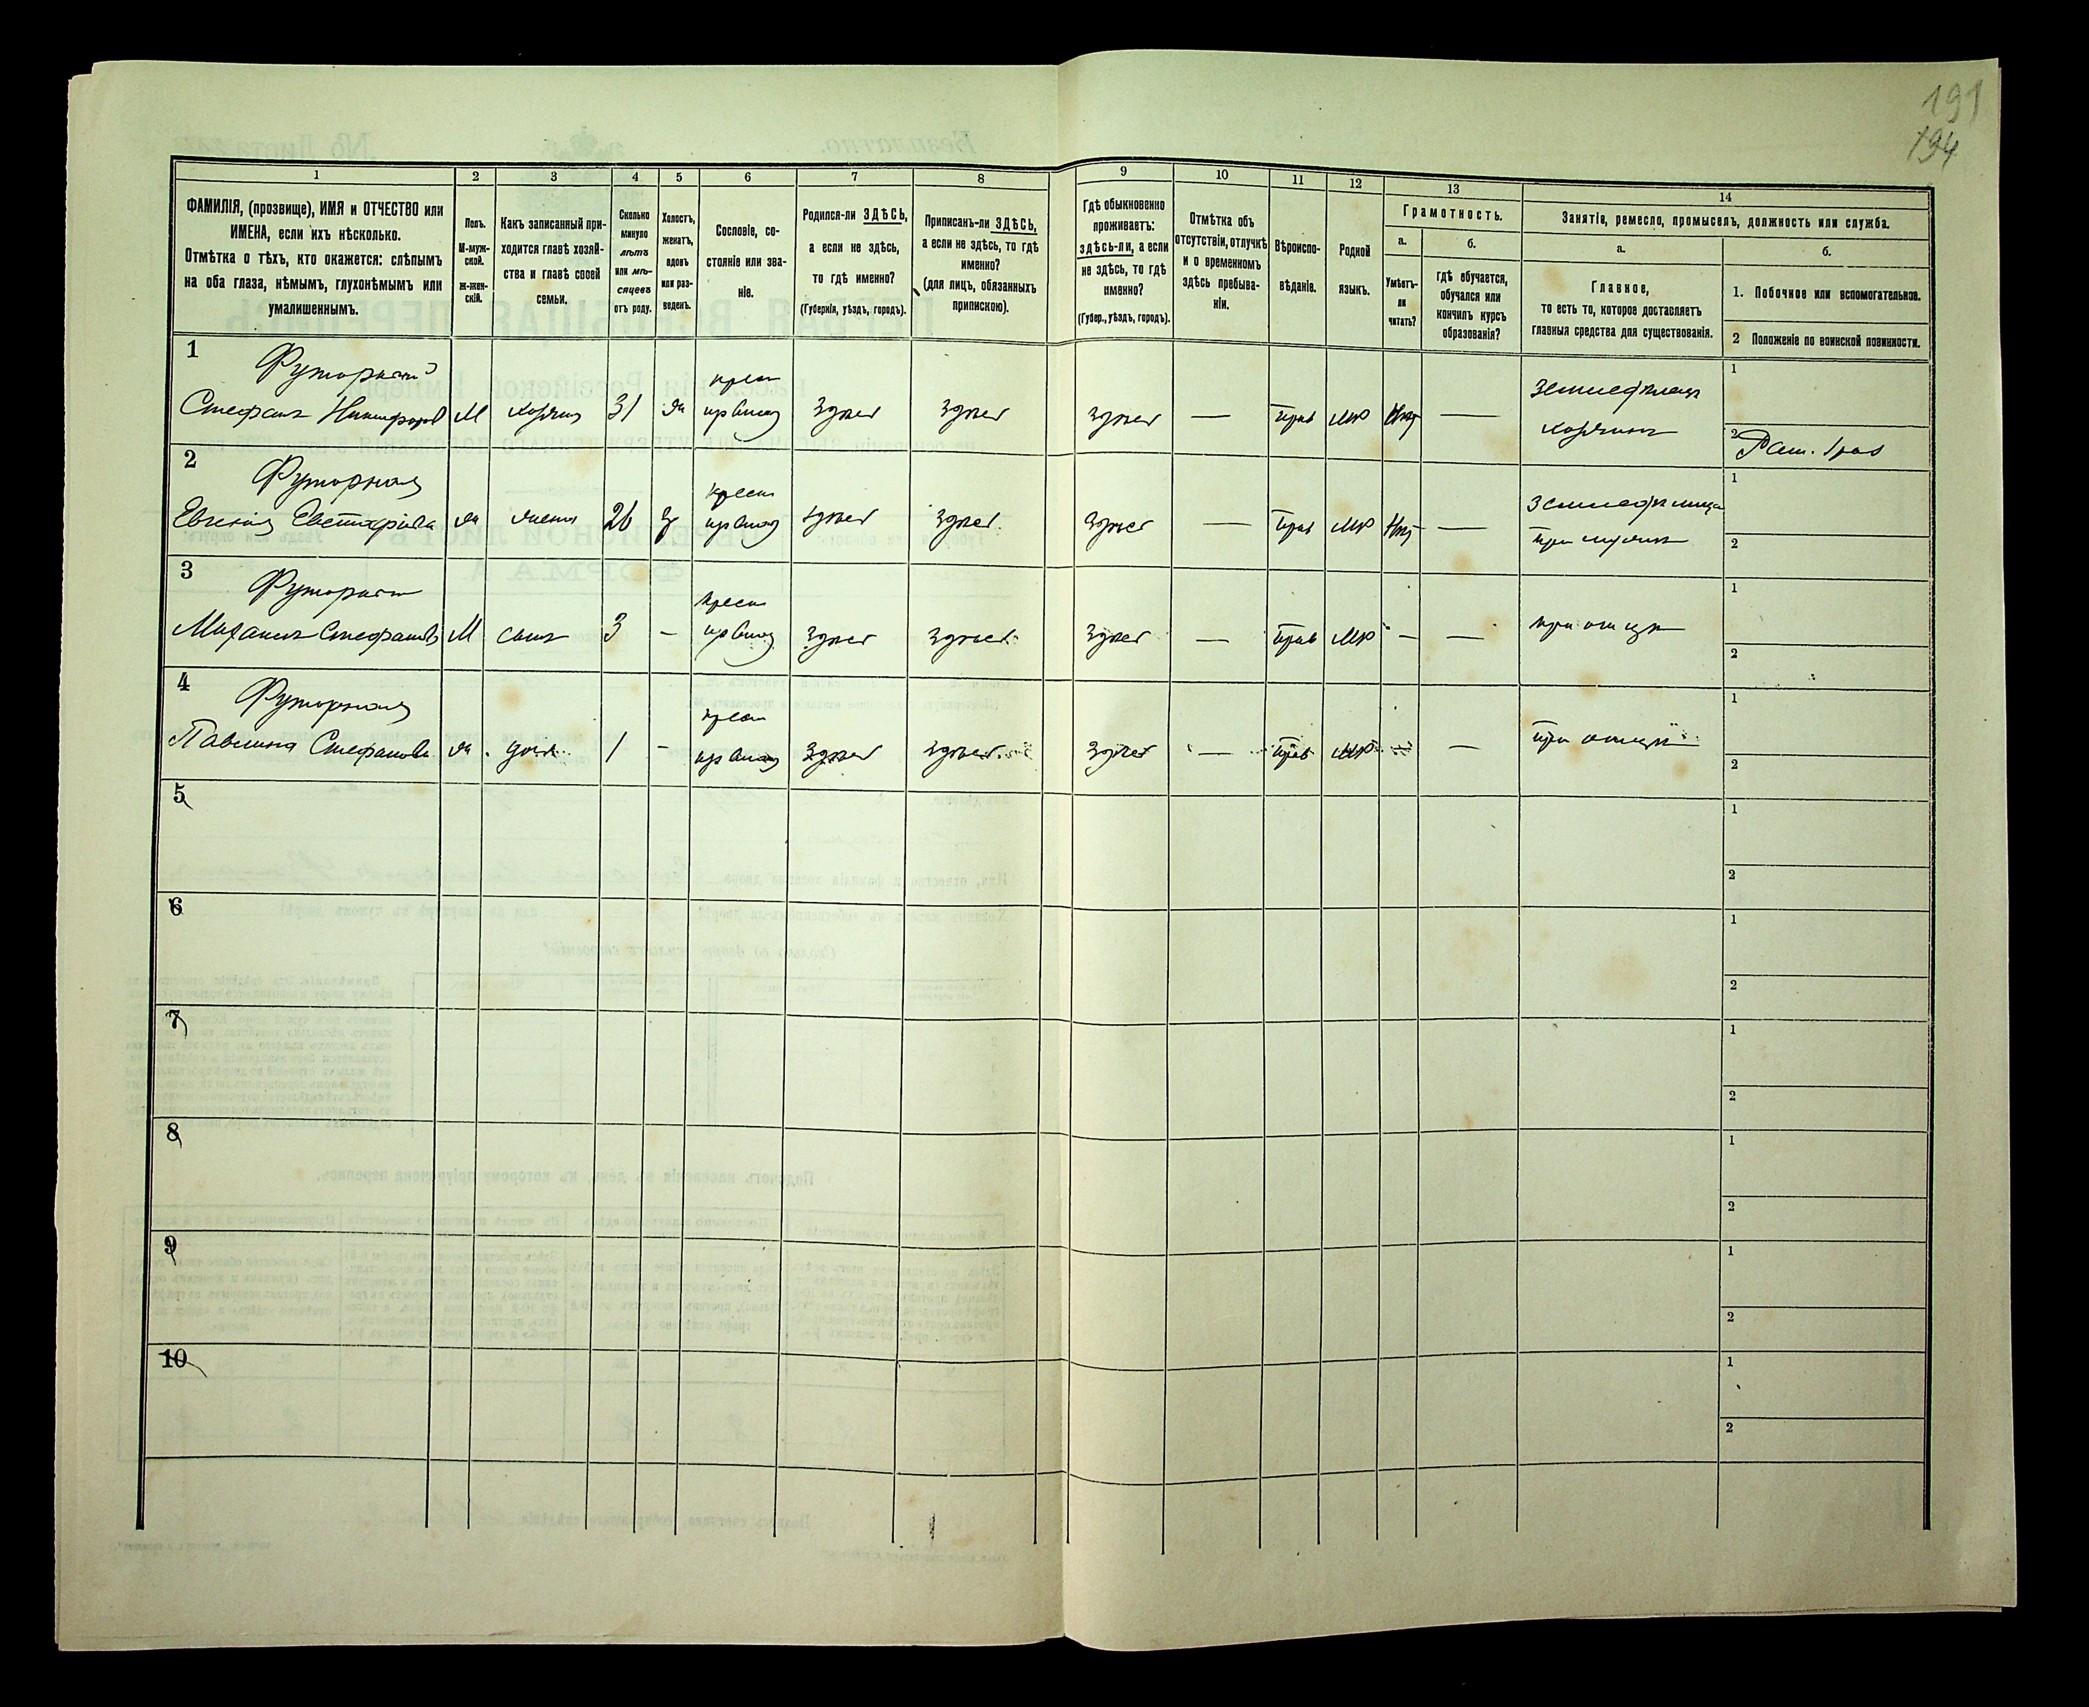 191
194
1 2 3 4 5 6 7 8 9 10 11 12 13 14
ФАМИЛІЯ, (прозвище), ИМЯ и ОТЧЕСТВО или
ИМЕНА, если ихъ нѣсколько.
Отмѣтка о тѣхъ, кто окажется: слѣпымъ
на оба глаза, нѣмымъ, глухонѣмымъ или
умалишеннымъ.
Полъ.
М-муж-
ской.
Ж-жен-
скій.
Какъ записанный при-
ходится главѣ хозяй-
ства и главѣ своей
семьи.
Сколько
минуло
лѣтъ
или мѣ-
сяцевъ
отъ роду.
Холостъ,
женатъ,
вдовъ
или раз-
веденъ.
Сословіе, со-
стояніе или зва-
ніе.
Родился-ли ЗДѢСЬ,
а если не здѣсь,
то гдѣ именно?
(Губернія, уѣздъ, городъ).
Приписанъ-ли ЗДѢСЬ,
а если не здѣсь, то гдѣ
именно?
(для лицъ, обязанныхъ
припискою).
Гдѣ обыкновенно
проживаетъ:
здѣсь-ли, а если
не здѣсь, то гдѣ
именно?
(Губер., уѣздъ, городъ).
Отмѣтка объ
отсутствіи, отлучкѣ
и о временномъ
здѣсь пребыва-
ніи.
Вѣроиспо-
вѣданіе.
Родной
языкъ.
Грамотность.
а.
Умѣетъ-
ли
читать?
б.
гдѣ обучается,
обучался или
кончилъ курсъ
образованія?
Занятіе, ремесло, промыселъ, должность или служба.
а.
Главное,
то есть то, которое доставляетъ
главныя средства для существованія.
б.
1. Побочное или вспомогательное.
2 Положеніе по воинской повинности.
1 Футорный
Стефанъ Никифоровъ М хозяинъ 31 ж крест
изъ влад здѣсь здѣсь здѣсь — прав мр нѣт — земледѣлецъ
хозяинъ
1
2
2 Футорная
Евгенія Евстафіева ж жена 26 з крест
изъ влад здѣсь здѣсь здѣсь — прав мр нѣт —
при мужѣ
1
2
3 Футорный
Михаилъ Стефановъ М сынъ 3 — крест
изъ влад здѣсь здѣсь здѣсь — прав мр — — при отцѣ
1
2
4 Футорная
Павлина Стефанова ж дочь 1 — крест
изъ влад здѣсь здѣсь здѣсь — прав мр — — при отцѣ
1
2
5
1
2
6
1
2
7
1
2
8
1
2
9
1
2
10
1
2